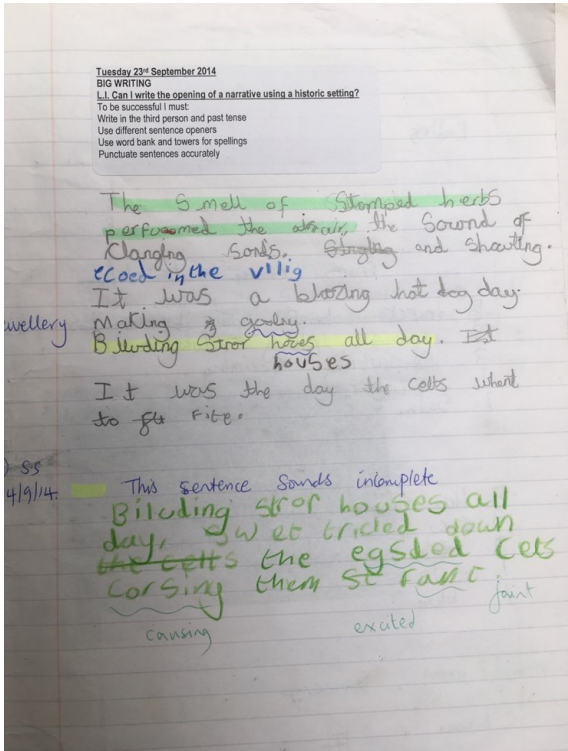 Tuesday 23rd September 2014
BIG WRITING
L.I. Can I write the opening of a narrative using a historic setting?
To be successful I must:
Write in the third person and past tense
Use different sentence openers
Use word bank and towers for spellings
Punctuate sentences accurately
The smell of stomped herbs
perfuomed the air, the Sound of
Clanging sords. and shouting.
ecoed in the vilig
It was a blazing hot day
wellery Making goolry.
Biluding Stror hoves all day.
houses
It was the day the celts whent
to Fite.
SS
4/9/14. This sentence sounds incomplete
Biluding stror houses all
day, swet tricled down
the egsded Celts
corsing them to fant
causing excited faint